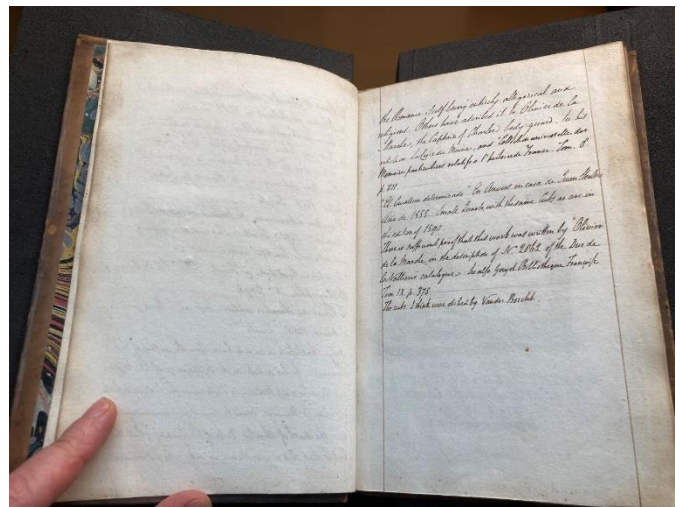 the Romance itself being entirely allegorical and
religious. Others have ascribed it to Olivier de la
Marche, the Captain of Charles' body guard. See his
article in La Croix du Maine, and "Collection universelle des
Memoires particuliers relatifs a l'histoire de France. Tom. 8
p.
"El Cavallero determinado" En Anvers en casa de Juan Steelsio
Año de 1555. Small Quarto, with the same cuts as are in
the edition of 1591.
There is sufficient proof that this work was written by "Olivier
de la Marche, in the description of No. 2862 of the Duc de
la Valliere's catalogue. See also Goujet Bibliotheque Françoise
Tom IX. p. 375
The cuts I think were etched by Vander Borcht.